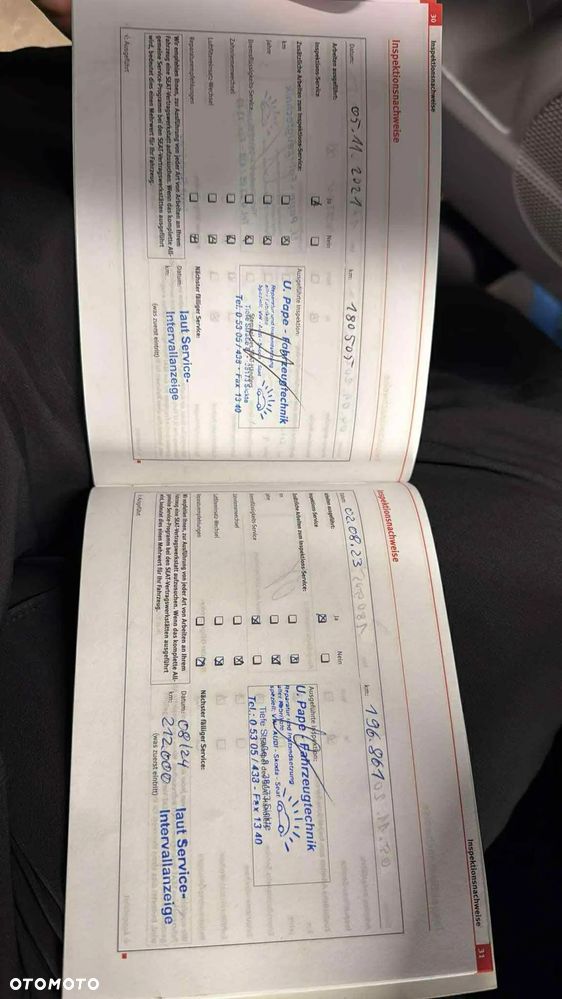 30 Inspektionsnachweise
Inspektionsnachweise
Datum: 05.11.2021
km: 180505
Arbeiten ausgeführt:
Ja Nein
Inspektions-Service
Zusätzliche Arbeiten zum Inspektions-Service:
km
Jahre
Bremsflüssigkeits-Service
Zahnriemenwechsel
Luftfiltereinsatz-Wechsel
Reparaturempfehlungen
Ausgeführte Inspektion:
U. Pape - Fahrzeugtechnik
Reparatur und Instandsetzung
aller Fabrikate
Tel.: 0 53 05 / 438 - Fax 13 40
Nächster fälliger Service:
Datum:
km:
laut Service-
Intervallanzeige
(was zuerst eintritt)
Wir empfehlen Ihnen, zur Ausführung von jeder Art von Arbeiten an Ihrem
Fahrzeug eine SEAT-Vertragswerkstatt aufzusuchen. Wenn das komplette All-
gemeine Service-Programm bei den SEAT-Vertragswerkstätten ausgeführt
wird, bedeutet dies einen Mehrwert für Ihr Fahrzeug.
Ausgeführt
Inspektionsnachweise 31
Inspektionsnachweise
02.08.23
km: 196.861
Ja Nein
Inspektions-Service
Zusätzliche Arbeiten zum Inspektions-Service:
Bremsflüssigkeits-Service
Zahnriemenwechsel
Luftfiltereinsatz-Wechsel
Reparaturempfehlungen
Ausgeführte Inspektion:
U. Pape - Fahrzeugtechnik
Reparatur und Instandsetzung
aller Fabrikate
speziell: VW - Audi - Skoda - Seat
Tiefe Straße
Tel.: 0 53 05 / 438 - Fax 13 40
Nächster fälliger Service:
Datum: 08/24
km: 212.000
laut Service-
Intervallanzeige
(was zuerst eintritt)
Wir empfehlen Ihnen, zur Ausführung von jeder Art von Arbeiten an Ihrem
Fahrzeug eine SEAT-Vertragswerkstatt aufzusuchen. Wenn das komplette All-
gemeine Service-Programm bei den SEAT-Vertragswerkstätten ausgeführt
wird, bedeutet dies einen Mehrwert für Ihr Fahrzeug.
OTOMOTO